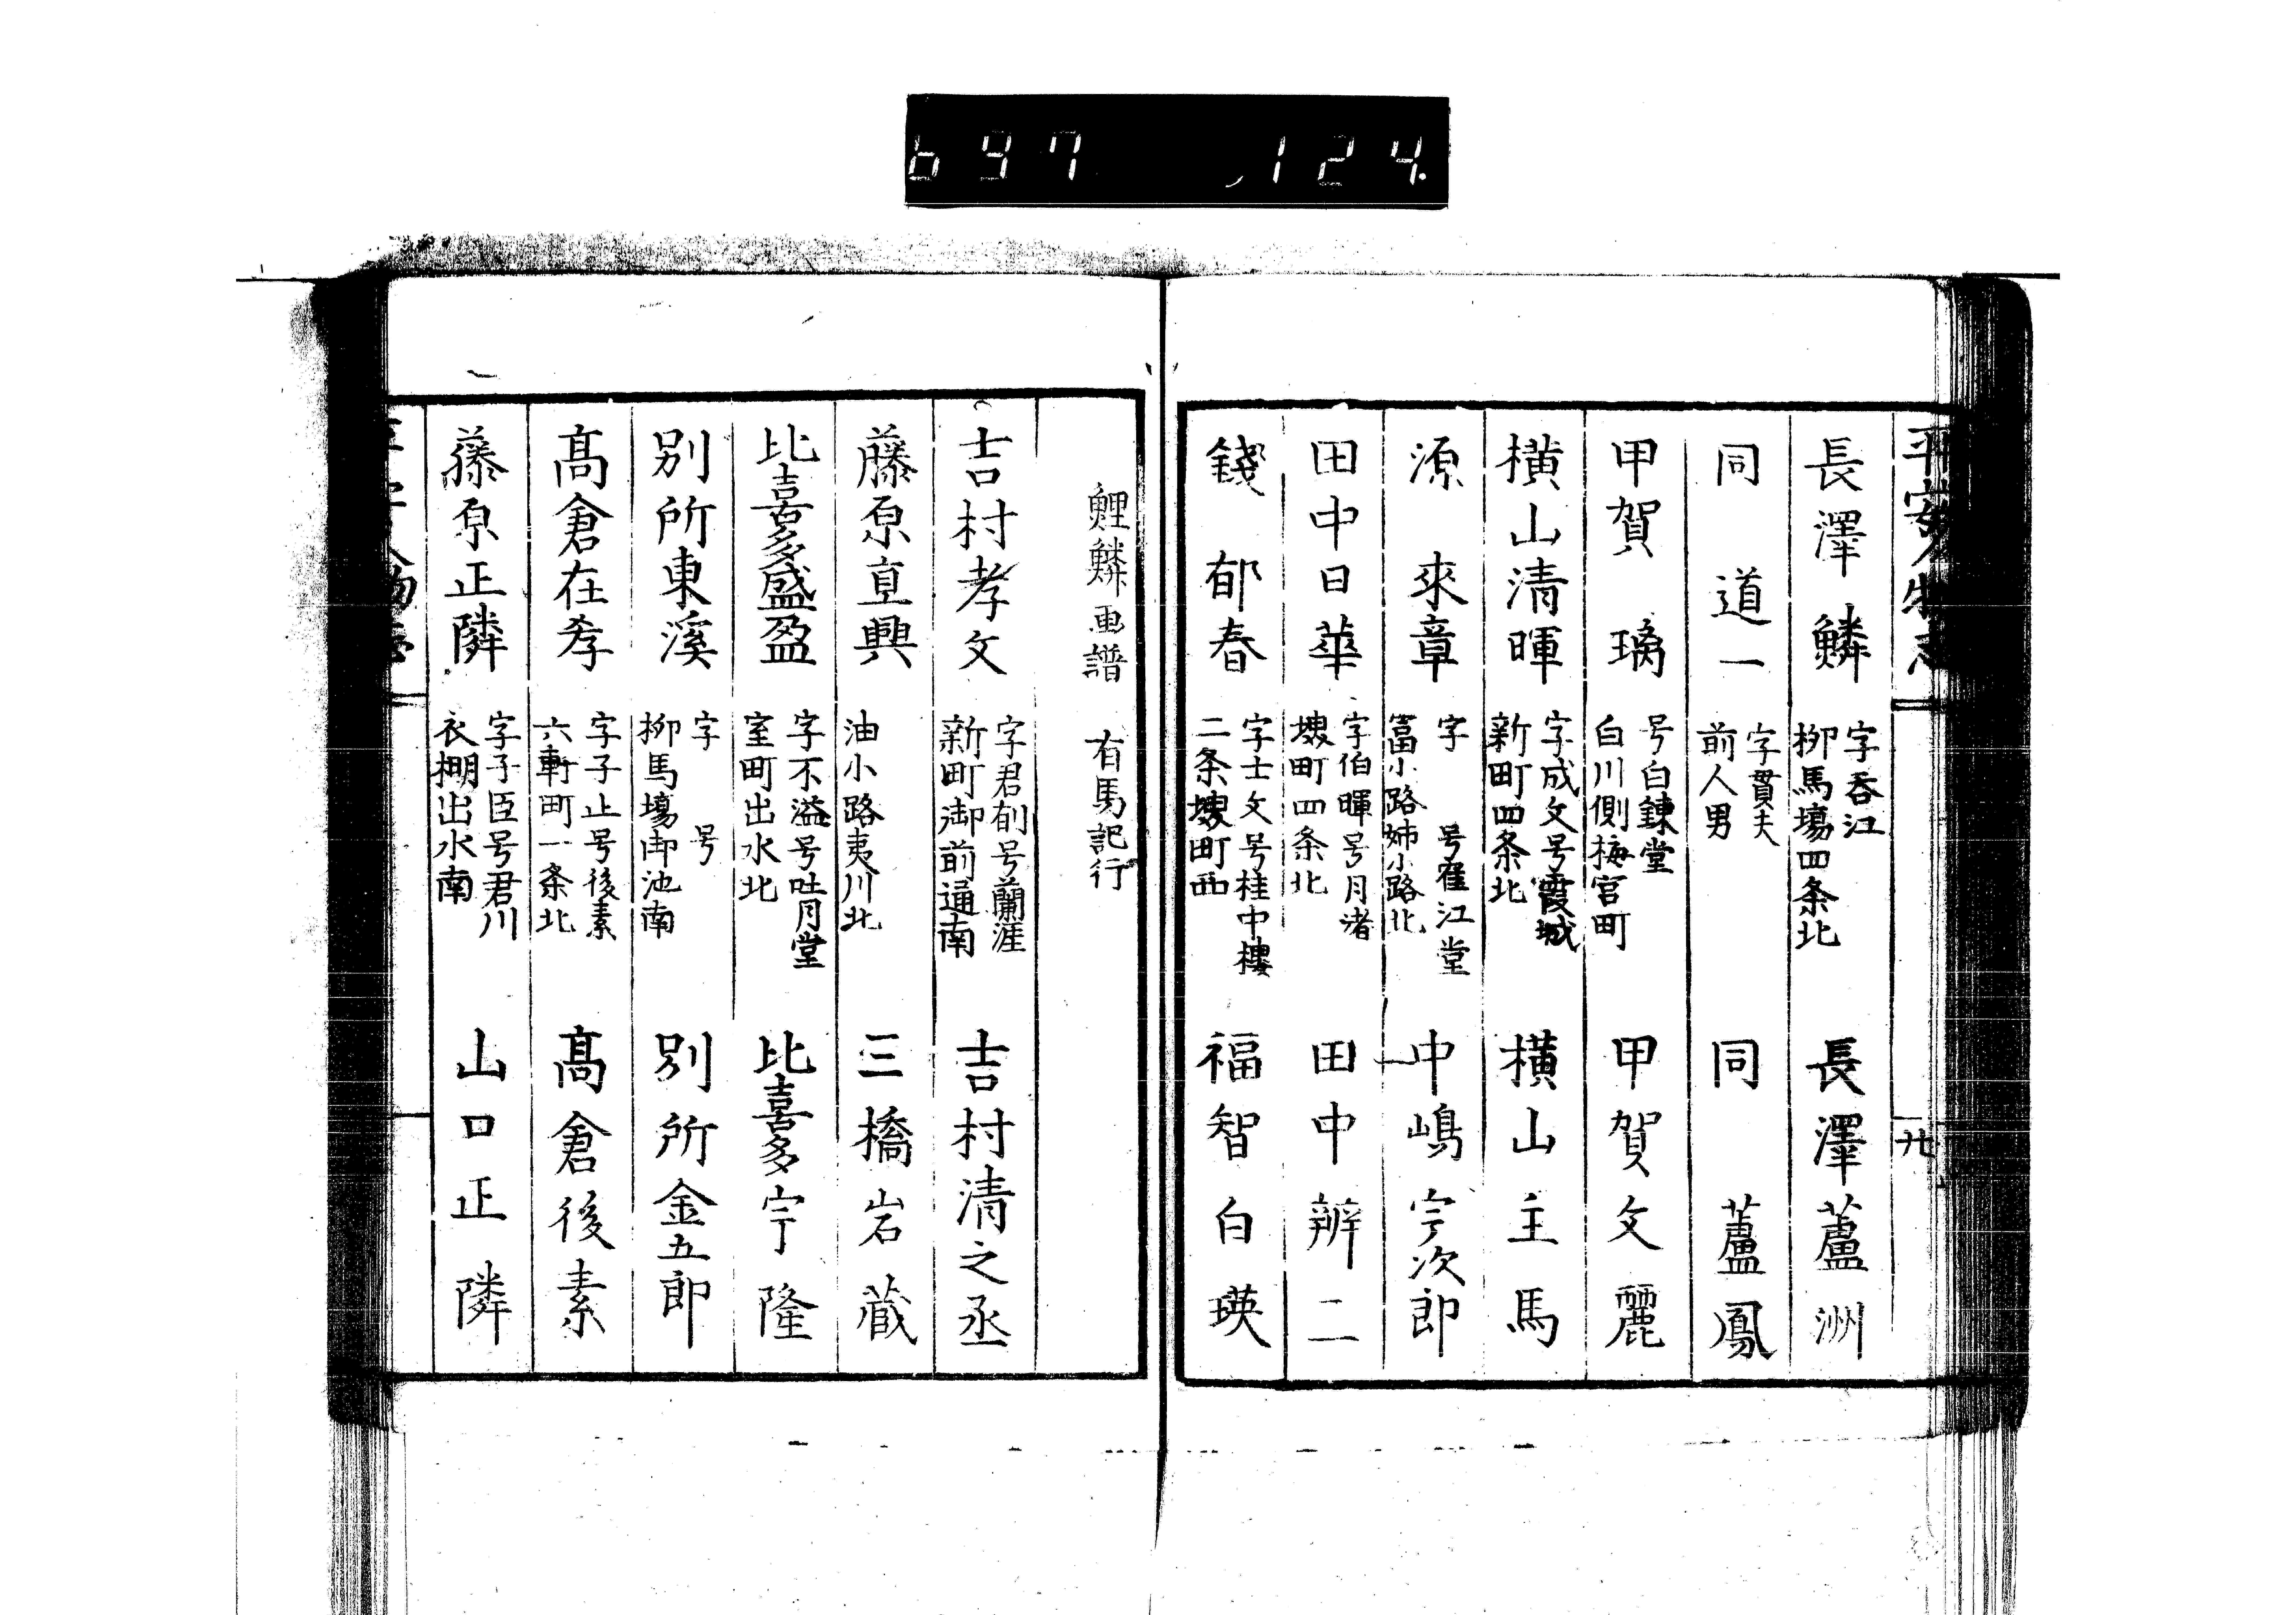 697 124
平安人物志
廿
長澤鱗 字呑江 柳馬場四条北 長澤蘆洲
同道一 字貫夫 前人男 同蘆鳳
甲賀璃 号白錬堂 白川側梅宮町 甲賀文麗
横山清暉 字成文号霞城 新町四条北 横山主馬
源來章 字 号寉江堂 富小路姉小路北 中嶋宇次郎
田中日華 字伯暉号月渚 堺町四条北 田中辨二
錢郁春 字士文号桂中樓 二条堺町西 福智白瑛
鯉鱗画譜 有馬記行
吉村孝文 字君刱号蘭涯 新町御前通南 吉村清之丞
藤原直興 油小路夷川北 三橋岩蔵
比喜多盛盈 字不溢号吐月堂 室町出水北 比喜多宇隆
別所東溪 字 号 柳馬場御池南 別所金五郎
髙倉在孝 字子止号後素 六軒町一条北 髙倉後素
藤原正隣 字子臣号君川 衣棚出水南 山口正隣